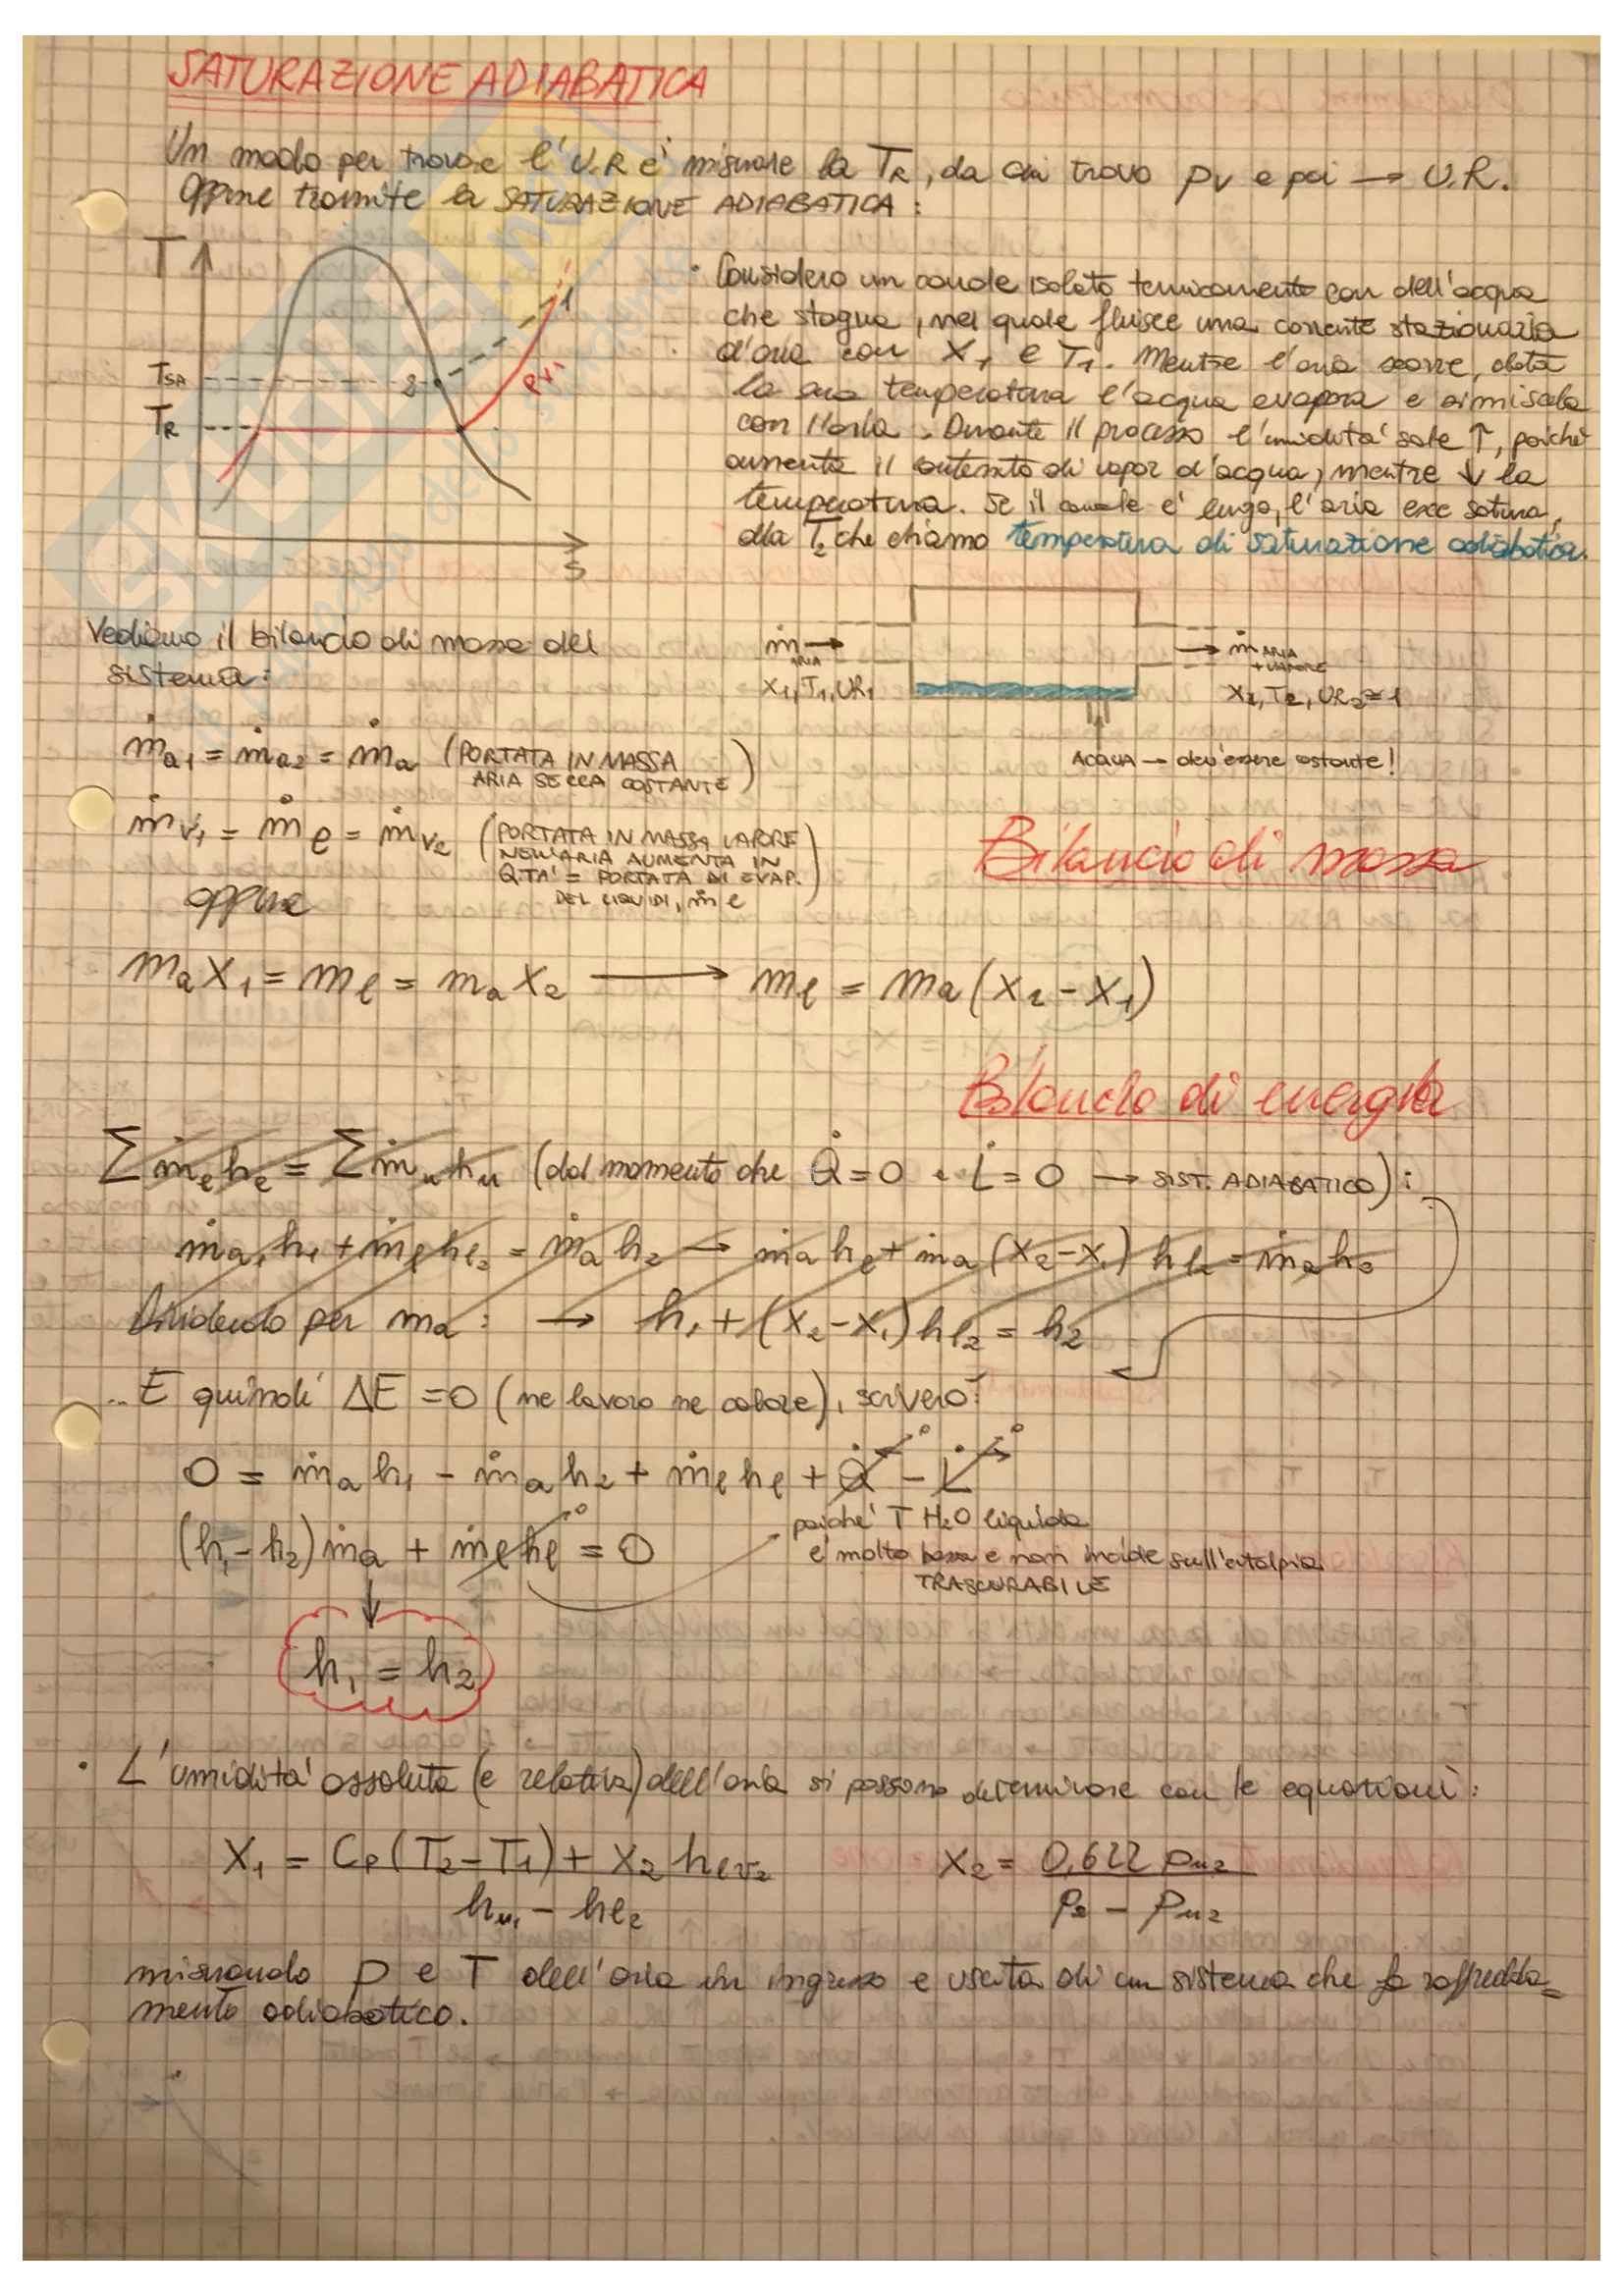 SATURAZIONE ADIABATICA
Un modo per trovare l'U.R è misurare la TR, da cui trovo pv e poi → U.R.
oppure tramite la SATURAZIONE ADIABATICA:
T
1
TSA
2
PV1
TR
S
• Considero un canale isolato termicamente con dell'acqua
che stagna, nel quale fluisce una corrente stazionaria
d'aria con X1 e T1. Mentre l'aria scorre, data
la sua temperatura l'acqua evapora e si miscela
con l'aria. Durante il processo l'umidità sale ↑, poiché
aumenta il contenuto di vapor d'acqua, mentre ↓ la
temperatura. Se il canale è lungo, l'aria esce satura,
alla T2 che chiamo temperatura di saturazione adiabatica.
Vediamo il bilancio di massa del
sistema:
ṁ → ARIA
X1, T1, UR1
→ ṁ ARIA + VAPORE
X2, T2, UR2 ≈ 1
ACQUA → dev'essere costante!
ṁa1 = ṁa2 = ṁa (PORTATA IN MASSA
ARIA SECCA COSTANTE)
ṁv1 = ṁl = ṁv2 (PORTATA IN MASSA VAPORE
NELL'ARIA AUMENTA IN
Q.TA' = PORTATA DI EVAP.
DEL LIQUIDI, ṁe)
Bilancio di massa
oppure
ma X1 = ml = ma X2 → ml = ma (X2 - X1)
Bilancio di energia
Σ ṁe he = Σ ṁu hu (dal momento che Q̇ = 0 e L̇ = 0 → SIST. ADIABATICO):
ṁa1 h1 + ṁl hl2 = ṁa h2 → ṁa he + ṁa (X2 - X1) hl2 = ṁa h2
Dividendo per ma: → h1 + (X2 - X1) hl2 = h2
... E quindi ΔE = 0 (ne lavoro ne calore), scriverò:
0 = ṁa h1 - ṁa h2 + ṁl hl + Q̇ 0 - L̇ 0
(h1 - h2) ṁa + ṁl hl 0 = 0
poiché T H2O liquida
è molto bassa e non incide sull'entalpia
TRASCURABILE
h1 = h2
• L'umidità assoluta (e relativa) dell'aria si possono determinare con le equazioni:
X1 = Cp (T2 - T1) + X2 hlv2
hu1 - hl2
X2 = 0,622 pu2
p2 - pu2
misurando p e T dell'aria in ingresso e uscita di un sistema che fa raffredda=
mento adiabatico.